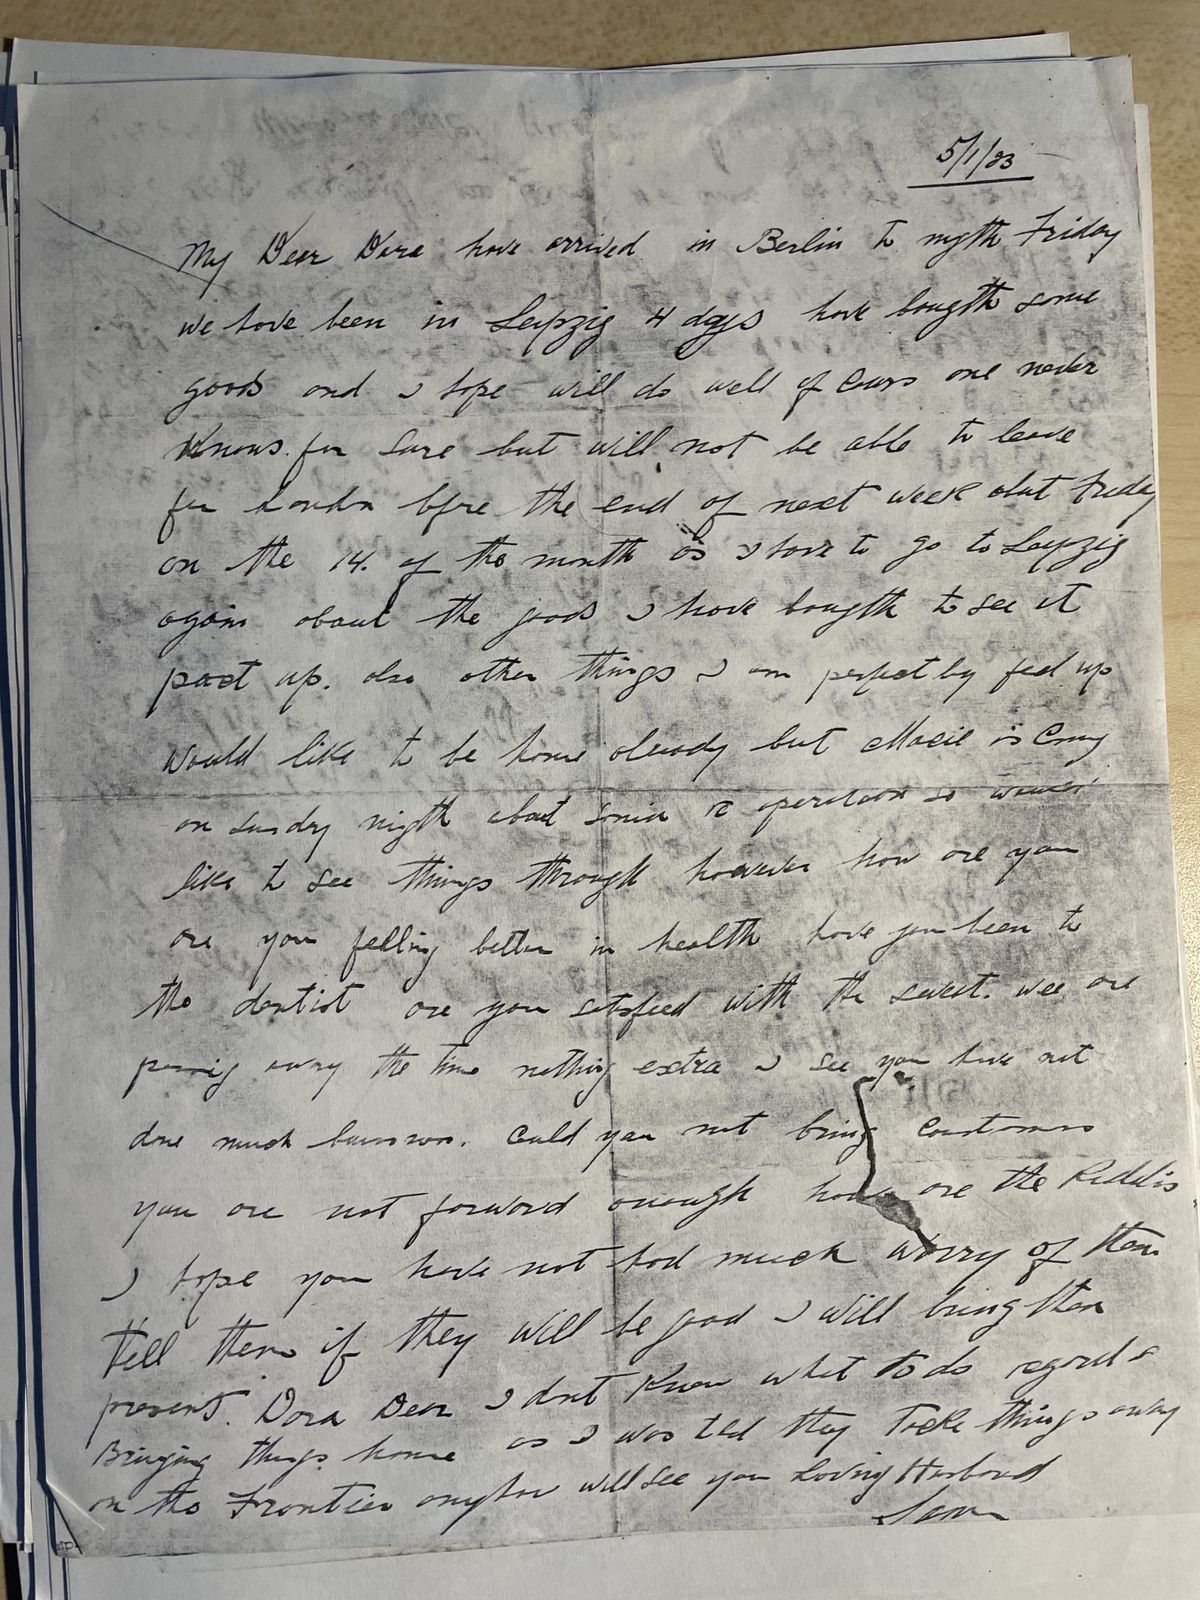 5/1/23
My Dear Dora have arrived in Berlin to nigth Friday
we have been in Leipzig 4 days have bougth some
goods and I hope will do well of Cours one never
Knows for sure but will not be able to leave
for London bfre the end of next week abut Friday
on the 14. of the month as I have to go to Leipzig
again about the goods I have bougth to see it
pact up. also other things I am perfect by fed up
would like to be home already but is
on Sunday nigth about operation so
like to see things through however how are you
are you felling better in health have you been to
the dentist are you satisfeed with the . wee are
passing away the time nothing extra I see you have not
done much . Could you not bring
you are not forward enough how are the Kiddis
I hope you have not had much worry of them
Tell them if they will be good I will bring them
present. Dora Dear I dont Know what to do
Bringing things home as I was told they take things away
on the Frontier will see you Loving Husband
Sam